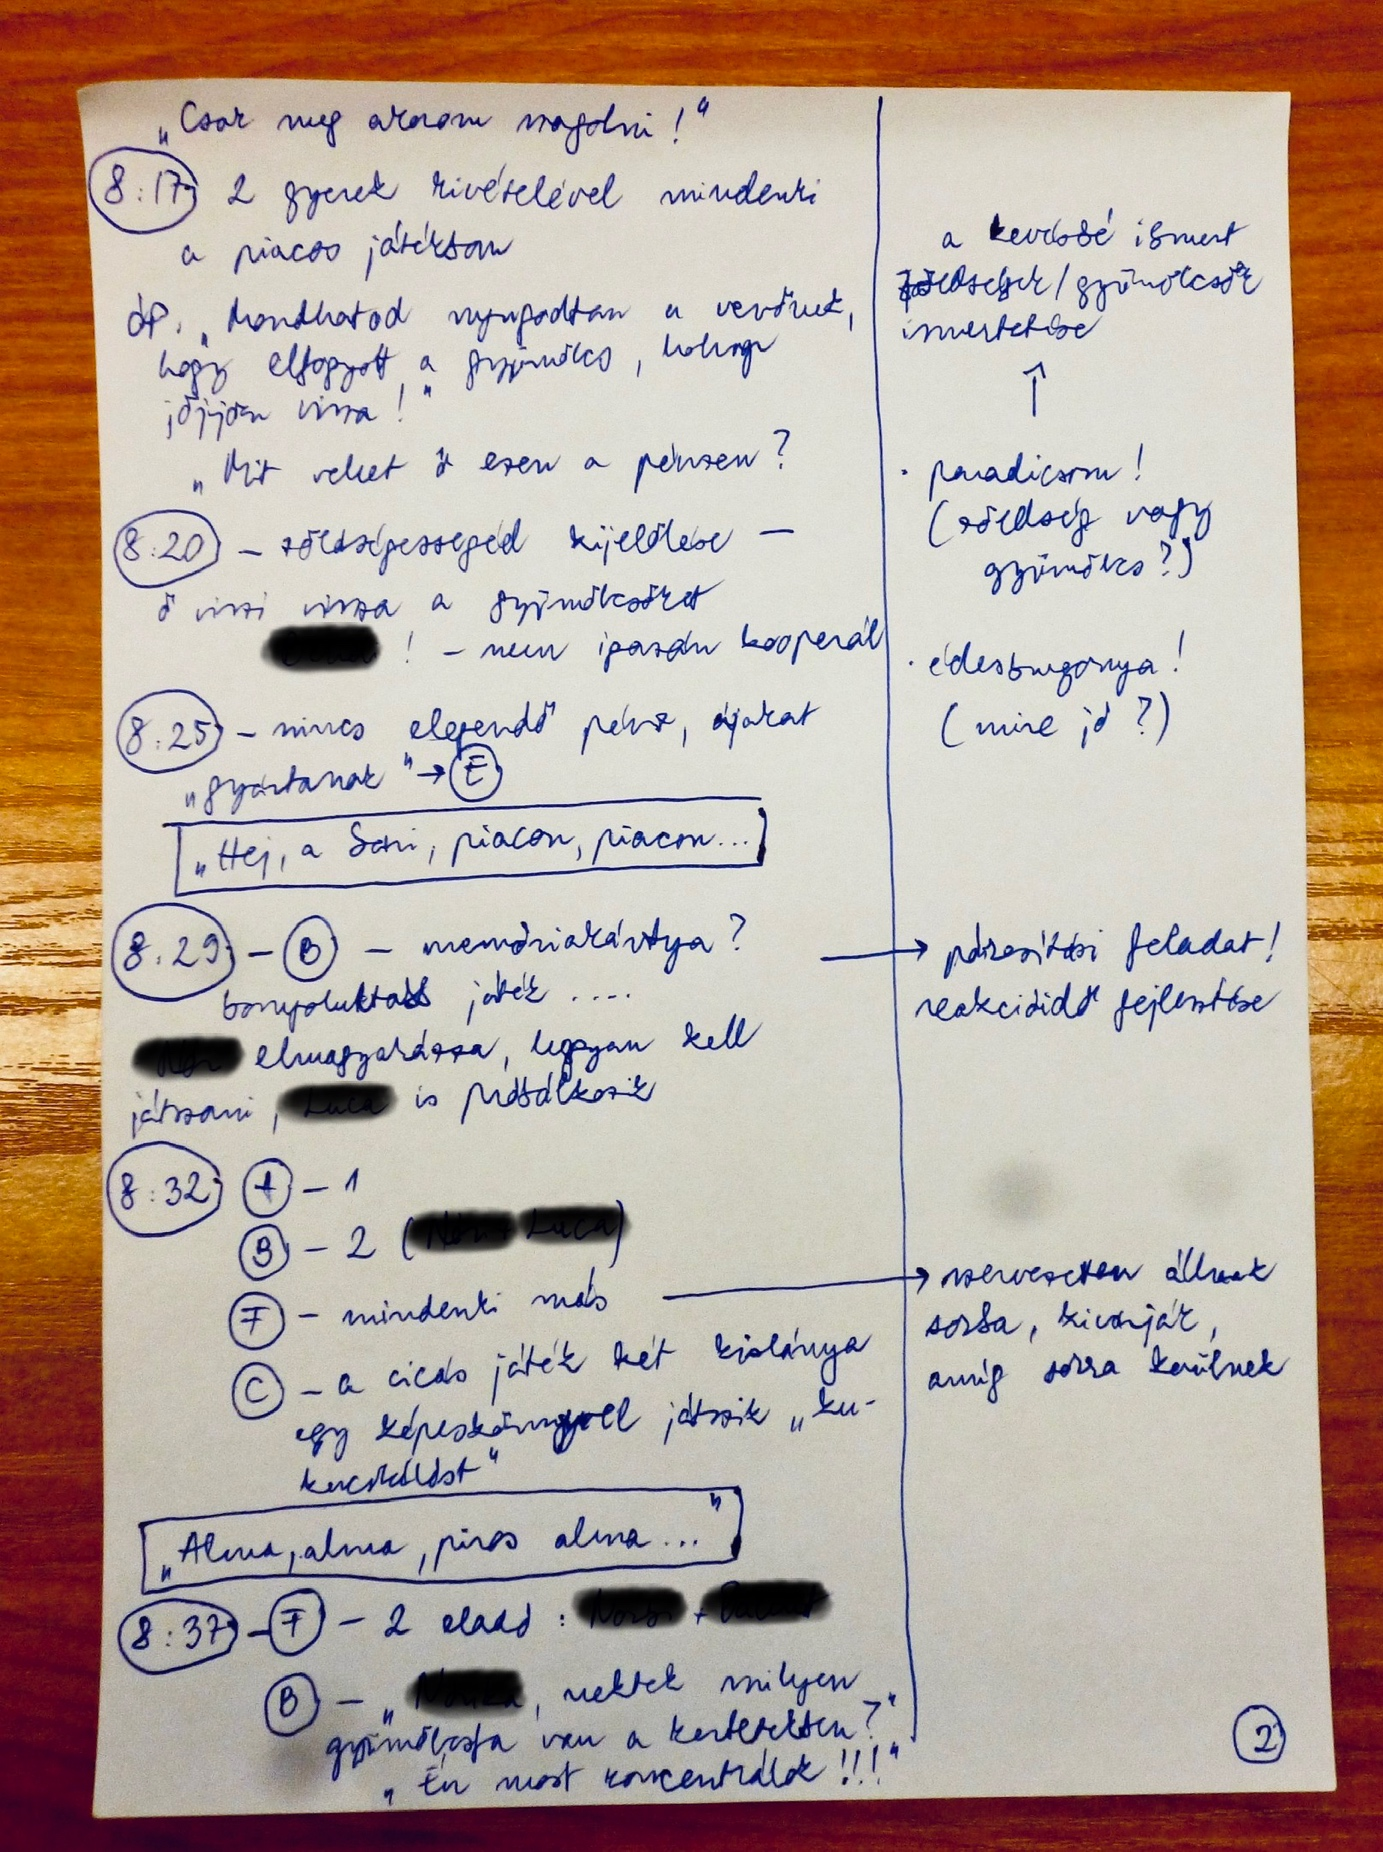 „Csak meg akarom szagolni!"
8:17 2 gyerek kivételével mindenki
a piacos játékban
óp. „Mondhatod nyugodtan a vevőnek,
hogy elfogyott a gyümölcs, holnap
jöjjön vissza!"
„Mit vehet ő ezen a pénzen?
8:20 – zöldségessegéd kijelölése –
ő viszi vissza a gyümölcsöket
! – nem igazán kooperál
8:25 – nincs elegendő pénz, újakat
„gyártanak" → E
„Hej, a sári piacon, piacon...
8:29 – B – memóriakártya?
bonyolultabb játék ....
elmagyarázza, hogyan kell
játszani, is próbálkozik
8:32 A – 1
B – 2 ( )
F – mindenki más
C – a cicás játék két kislánya
egy képeskönyvvel játszik „ku-
kucskálást"
„Alma, alma, piros alma..."
8:37 – F – 2 eladó: +
B – „ , nektek milyen
gyümölcsfa van a kertetekben?"
„Én most koncentrálok!!!"
a kevésbé ismert
zöldségek/gyümölcsök
ismertetése
↑
· paradicsom!
(zöldség vagy
gyümölcs?)
· édesburgonya!
(mire jó?)
→ párosítási feladat!
reakcióidő fejlesztése
→ szervezetten állnak
sorba, kivárják,
amíg sorra kerülnek
2